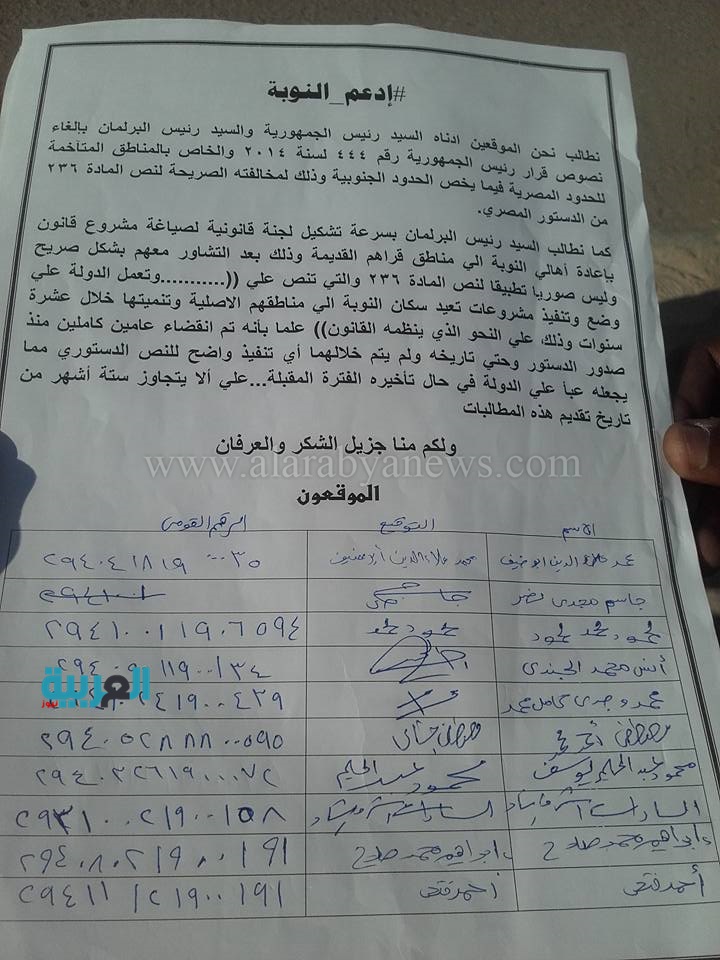 #إدعم_النوبة
نطالب نحن الموقعين ادناه السيد رئيس الجمهورية والسيد رئيس البرلمان بإلغاء
نصوص قرار رئيس الجمهورية رقم ٤٤٤ لسنة ٢٠١٤ والخاص بالمناطق المتاخمة
للحدود المصرية فيما يخص الحدود الجنوبية وذلك لمخالفته الصريحة لنص المادة ٢٣٦
من الدستور المصري.
كما نطالب السيد رئيس البرلمان بسرعة تشكيل لجنة قانونية لصياغة مشروع قانون
بإعادة أهالي النوبة الي مناطق قراهم القديمة وذلك بعد التشاور معهم بشكل صريح
وليس صوريا تطبيقا لنص المادة ٢٣٦ والتي تنص علي ((...........وتعمل الدولة علي
وضع وتنفيذ مشروعات تعيد سكان النوبة الي مناطقهم الاصلية وتنميتها خلال عشرة
سنوات وذلك علي النحو الذي ينظمه القانون)) علما بأنه تم انقضاء عامين كاملين منذ
صدور الدستور وحتي تاريخه ولم يتم خلالهما أي تنفيذ واضح للنص الدستوري مما
يجعله عبأ علي الدولة في حال تأخيره الفترة المقبلة...علي ألا يتجاوز ستة أشهر من
تاريخ تقديم هذه المطالبات
ولكم منا جزيل الشكر والعرفان
www.alarabyanews.com
الموقعون
الاسم التوقيع الرقم القومى
محمد علاء الدين ابو ضيف محمد علاء الدين
جاسم مجدى نصر
محمود محمد محمود محمود محمد ٢٩٤١٠٠١١٩٠٦٥٩٤
أنس محمد الجندى
محمد وجدى كامل محمد
مصطفى أحمد محمد مصطفى ٢٩٤٠٥٢٨٨٨٠٠٥٩٥
محمود عبد الحليم يوسف محمود عبد الحليم ٢٩٤٠٣٢٦١٩٠٠٠٧٢
السادات السادات ٢٩٣١٠٠٢١٩٠٠١٥٨
ابراهيم محمد صلاح ابراهيم محمد صلاح ٢٩٤٠٨٠٢١٩٠٠١٩١
أحمد فتحى أحمد فتحى ٢٩٤١١١٢١٩٠٠١٩١
العربية
نيوز